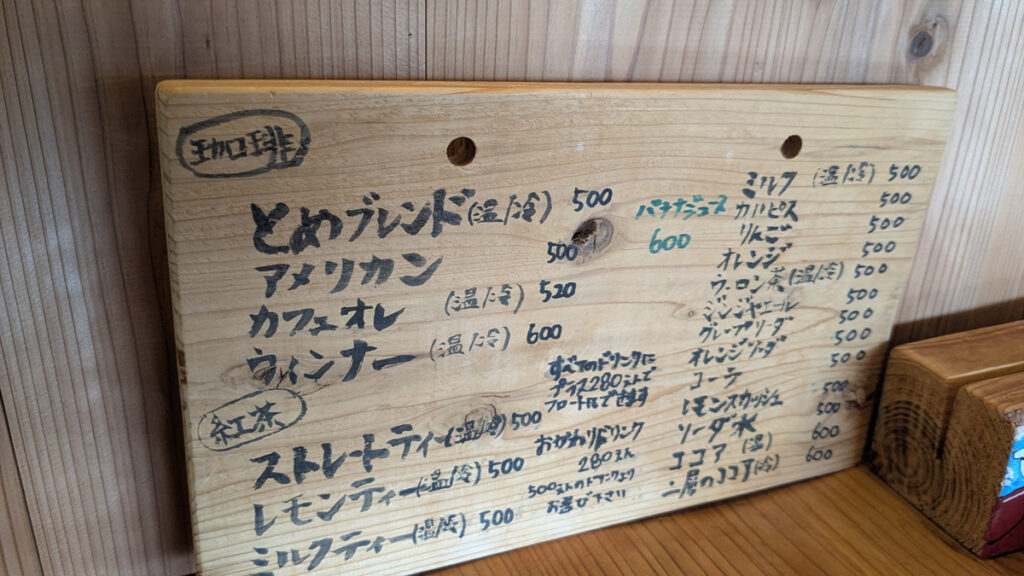 珈琲
とめブレンド(温/冷) 500
アメリカン 500
カフェオレ (温/冷) 520
ウィンナー (温/冷) 600
紅茶
ストレートティー(温/冷) 500
レモンティー(温/冷) 500
ミルクティー(温/冷) 500
バナナジュース
600
すべてのドリンクに
プラス280えんで
フロートにできます
おかわりドリンク
280えん
500えんのドリンクより
お選び下さい
ミルク (温/冷) 500
カルピス 500
りんご 500
オレンジ 500
ウーロン茶(温/冷) 500
ジンジャエール 500
グレープソーダ 500
オレンジソーダ 500
コーラ
レモンスカッシュ 500
ソーダ水 500
ココア (温) 600
二層のココア(冷) 600